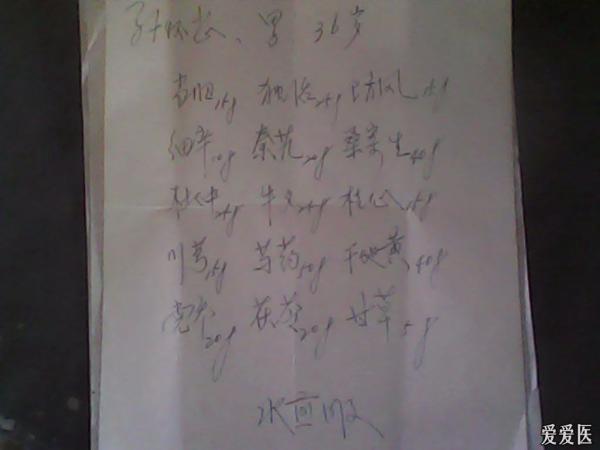 男 36岁
15g 独活25g 防风15g
细辛10g 秦艽20g 桑寄生40g
杜仲25g 牛夕25g 桂心15g
川芎15g 芍药50g 干地黄40g
党参20g 茯苓20g 甘草5g
水煎服
爱爱医